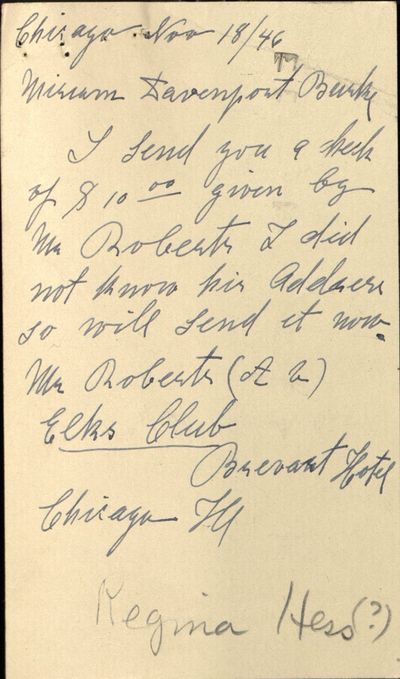 Chicago Nov 18/46
Miriam Davenport Burke
I send you a check
of $10 00 given by
Mr Roberts I did
not know his Address
so will send it now.
Mr Roberts (A
Elks Club
Brevart Hotel
Chicago Ill
Regina Hess(?)